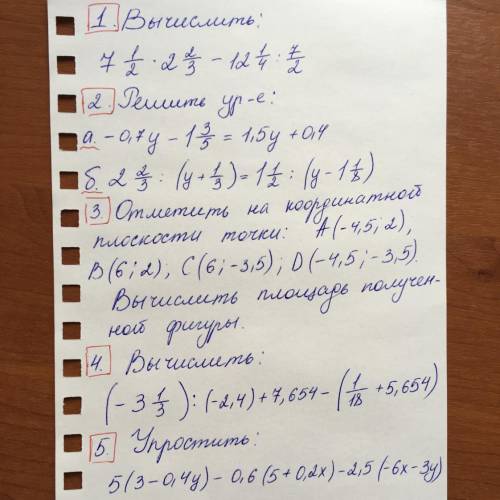 1. Вычислить:
7 1/2 · 2 2/3 - 12 1/4 : 7/2
2. Решить ур-е:
а. -0,7y - 1 3/5 = 1,5y + 0,4
б. 2 2/3 : (y + 1/3) = 1 1/2 : (y - 1 1/8)
3. Отметить на координатной
плоскости точки: A(-4,5; 2),
B(6; 2), C(6; -3,5); D(-4,5; -3,5).
Вычислить площадь получен-
ной фигуры.
4. Вычислить:
(-3 1/3) : (-2,4) + 7,654 - (1/18 + 5,654)
5. Упростить:
5(3 - 0,4y) - 0,6(5 + 0,2x) - 2,5(-6x - 3y)